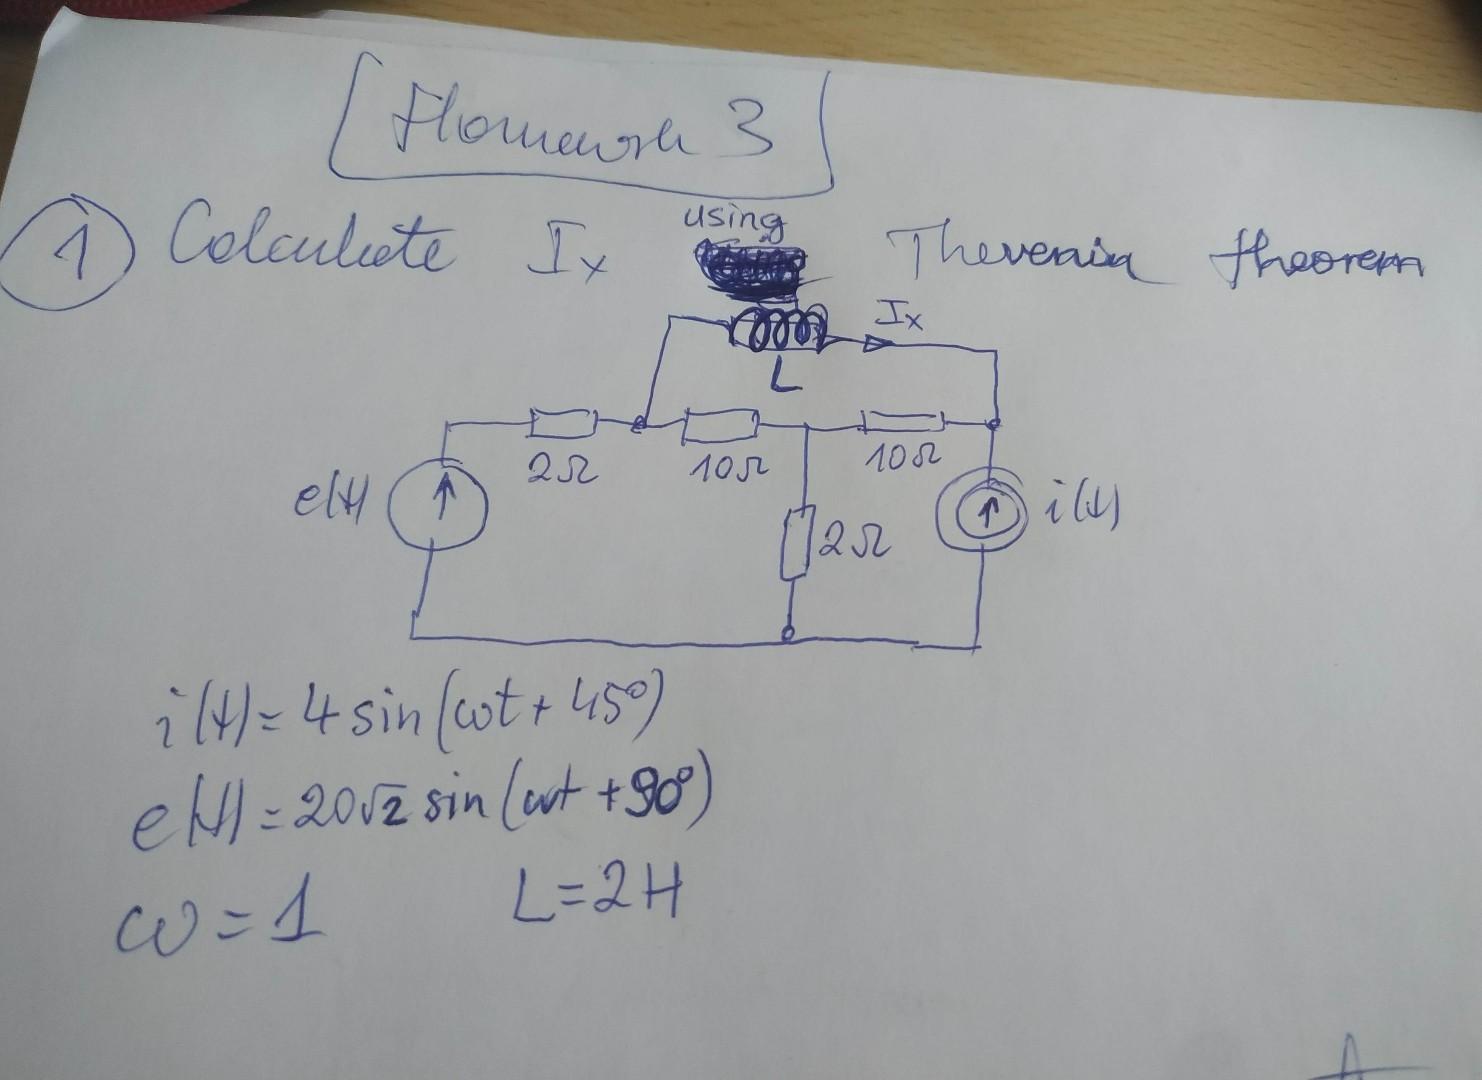 Homework 3
1 Calculate Ix using Thevenin theorem
Ix
L
2Ω 10Ω 10Ω
e(t) 2Ω i(t)
i(t) = 4 sin(ωt + 45°)
e(t) = 20√2 sin(ωt + 90°)
ω = 1 L = 2H